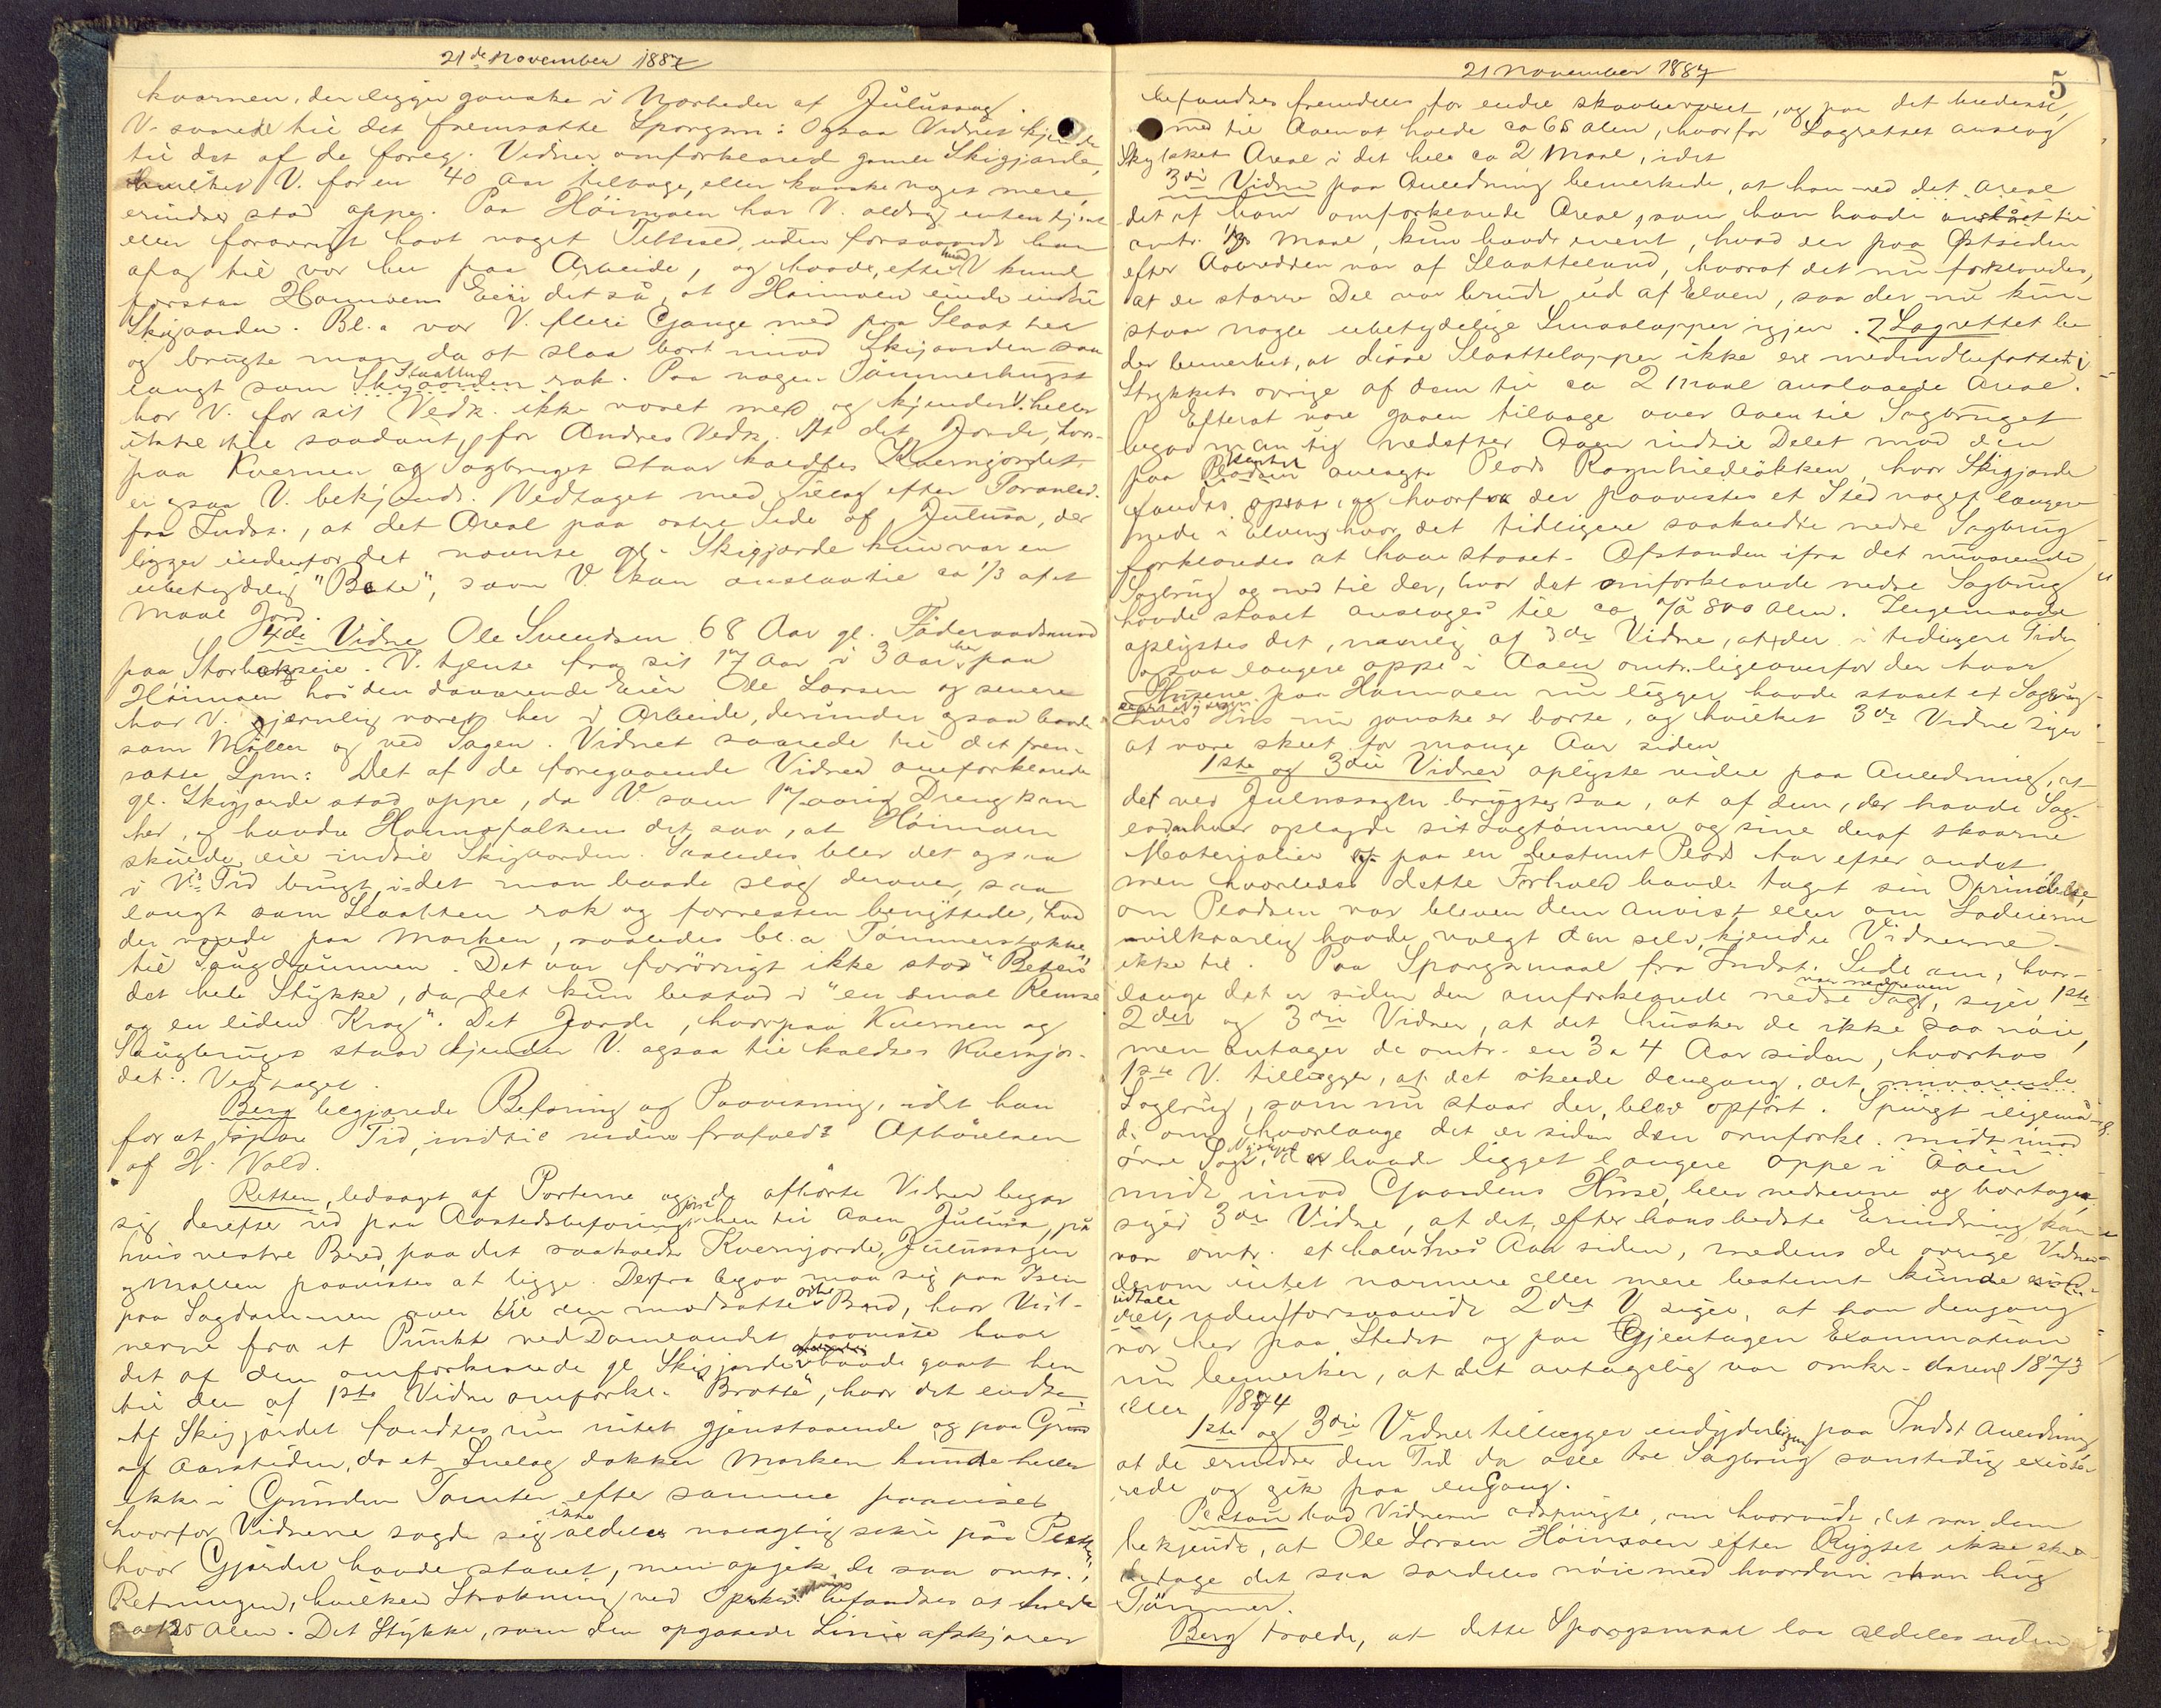 21de November 1887
kvarnen, der ligger ganske i Nærheden af Julussag.
V. svarede til det fremsatte Spørgsm: Ogsaa Vidnet kjender
til det af de foreg. Vidner omforklarede gamle Skigjærde,
hvilket V. for en 40 Aar tilbage, eller kanske noget mere,
erindrer stod oppe. Paa Høimoen har V. aldrig enten tjent
eller forøvrigt havt noget Tilhold, uden forsaavidt han
af og til var her paa Arbeide, og havde, efter hvad V kunde
forstaa Høimoens Eier det så, at Høimoen eiede indtil
Skigaarden. Bl. a var V. flere Gange med paa Slaat her
og brugte man da at slaa bort mod Skigaarden saa
langt som Slaatten rak. Paa nogen Tømmerhugst
har V. for sit Vedk. ikke været med og kjender V. heller
ikke til saadant for Andres Vedk. At det Jorde, hvor-
paa Kvernen og Sagbruget staar kaldtes Kvernjordet
er ogsaa V. bekjendt. Vedtaget med Tillæg efter Foranled.
fra Indst., at det Areal paa østre Side af Julussa, der
ligger indenfor det nævnte gl. Skigjærde kun var en
ubetydelig "Bete", som V. kan anslaa til ca 1/3 af et
Maal Jord.
4de Vidne Ole Svendsen 68 Aar gl. Føderaadsmand
paa Storbergseie. V. tjente fra sit 17 Aar i 3 Aar her paa
Høimoen hos den davarende Eier Ole Larsen og senere
har V. jævnlig været her i Arbeide, derunder ogsaa baade
som Møller og ved Sagen. Vidnet svarede til det frem-
satte Spm: Det af de foregaaende Vidner omforklarede
gl. Skigjærde stod oppe, da V. som 17 aarig Dreng kom
her, og havde Høimofolkene det saa, at Høimoen
skulde eie indtil Skigaarden. Saaledes blev det ogsaa
i V's Tid brugt, i-det man baade slog derover, saa
langt som Slaatten rak og forresten benyttede, hvad
der var paa Marken, saaledes bl. a Tømmerstokke
til Saugdammen. Det var forøvrigt ikke stort "Beten"
det hele Stykke, da det kun bestod i "en smal Remse
og en liden Krog". Det Jorde, hvorpaa Kvernen og
Saugbruget staar kjender V. ogsaa til kaldtes Kvernjor-
det. Vedtaget.
Berg begjærede Befaring og Paavisning, idet han
for at spare Tid, indtil videre frafaldt Afhørelsen
af H. Vold.
Retten, ledsaget af Parterne og de afhørte Vidner begav
sig derefter ud paa Aastedsbefaring hen til Aaen Julussa, på
hvis vestre Bred, paa det saakaldte Kvernjorde, Julussagen
og Møllen paavistes at ligge. Derfra begav man sig paa Isen
paa Sagdammen over til den modsatte østre Bred, hvor Vid-
nerne fra et Punkt ved Damlandet paaviste hvor
det af dem omforklarede gl Skigjærde havde gaaet hen
til den af 1ste Vidne omforkl. "Brotte", hvor det endte.
Af Skigjærdet fandtes nu intet gjenstaaende og paa Grund
af Aarstiden, da et Snelag dækker Marken kunde heller
ikke i Grunden Tomter efter samme paavises
hvorfor Vidnerne sagde sig ikke aldeles nøiagtig sikre på Pladsen,
hvor Gjærdet havde staaet, men opgik de saa omtr.
Retningen, hvilken Strækning ved Opskridning befandtes at holde
ca 125 Alen. Det Stykke, som den opgaaede Linie afskjærer
21 November 1887
5
befandtes fremdeles for endel skovbevoxet, og paa det bredeste,
ned til Aaen at holde ca 65 alen, hvorfor Lagrettet anslog
Stykkets Areal i det hele ca 2 Maal, idet
3die Vidne paa Anledning bemerkede, at han ved det Areal
det af ham omforklarede Areal, som han havde anslået til
omtr. 1/3 Maal, kun havde ment, hvad der paa Østsiden
efter Aabredden var af Slaatteland, hvoraf det nu forklaredes,
at de større Del var brudt ud af Elven, saa der nu kun
staar nogle ubetydelige Smaalapper igjen. Lagrettet be
der bemerket, at disse Slaattelapper ikke er medindbefattet i
Stykkets øvrige af dem til ca 2 Maal anslaaede Areal.
Efterat være gaaen tilbage over Aaen til Sagbruget
begav man sig nedefter Aaen indtil Delet mod den
paa Kartet anlagte Plads Ragnhildløkken, hvor Skigjærde
fandtes opsat, og hvorfra der paavistes et Sted noget længere
nede i Elven, hvor det tidligere saakaldte nedre Sagbrug
forklaredes at have staaet. Afstanden ifra det nuværende
Sagbrug og ned til der, hvor det omforklarede nedre Sagbrug
havde staaet ansloges til ca 7 à 800 Alen. Ligemaade
oplystes det, navnlig af 3die Vidne, at der i tidligere Tider
ogsaa længere oppe i Aaen omtr. ligeoverfor der hvor
Husene paa Høimoen nu ligger havde staaet et Sagbrug
hvis Hus nu ganske er borte, og hvilket 3die Vidne siger
at være skeet for mange Aar siden
1ste og 3die Vidner oplyste videre paa Anledning, at
det ved Julussagen brugtes saa, at af dem, der havde Sag-
lod enhver oplagde sit Sagtømmer og sine deraf skaarne
Materialier paa en bestemt Plads har efter andet,
men hvorledes dette Forhold havde taget sin Oprindelse,
om Pladsen var bleven dem anvist eller om Lodeierne
vilkaarlig havde valgt den selv, kjendte Vidnerne
ikke til. Paa Spørgsmaal fra Indst. Side om, hvor-
længe det er siden den omforklarede nedre Sag var nedreven, siger 1ste
2det og 3die Vidner, at det husker de ikke saa nøie,
men antager de omtr. en 3 a 4 Aar siden, hvorhos
1ste V. tillægger, at det skede dengang, det nuværende
Sagbrug, som nu staar der, blev opført. Spurgt iligemaa-
de om, hvorlænge det er siden den omforkl. midt imod
øvre Sag, Nysaget, der havde ligget længere oppe i Aaen
midt imod Gaardens Huse, blev nedrevne og borttagen
siger 3die Vidne, at det, efter hans bedste Erindring kan
var omtr. et halvtres Aar siden, medens de øvrige Vidner
derom intet nærmere eller mere bestemt kunde
udtale, uden forsaavidt 2det V. siger, at han dengang
var her paa Stedet og paa Gjentagen Examination
nu bemerker, at det antagelig var omkr. 1873
eller 1874
1ste og 3die Vidner tillægger endyderligere paa Indst Anledning
at de erindrer den Tid da alle tre Sagbrug samtidig existe-
rede og gik paa engang.
Vidnerne adspurgte, om hvorvidt det var dem
bekjendt, at Ole Larsen Høimoen efter Rygtet ikke skul-
de tage det saa særdeles nøie med hvordan man hug
Tømmer.
Berg troede, at dette Spørgsmaal laa aldeles uden